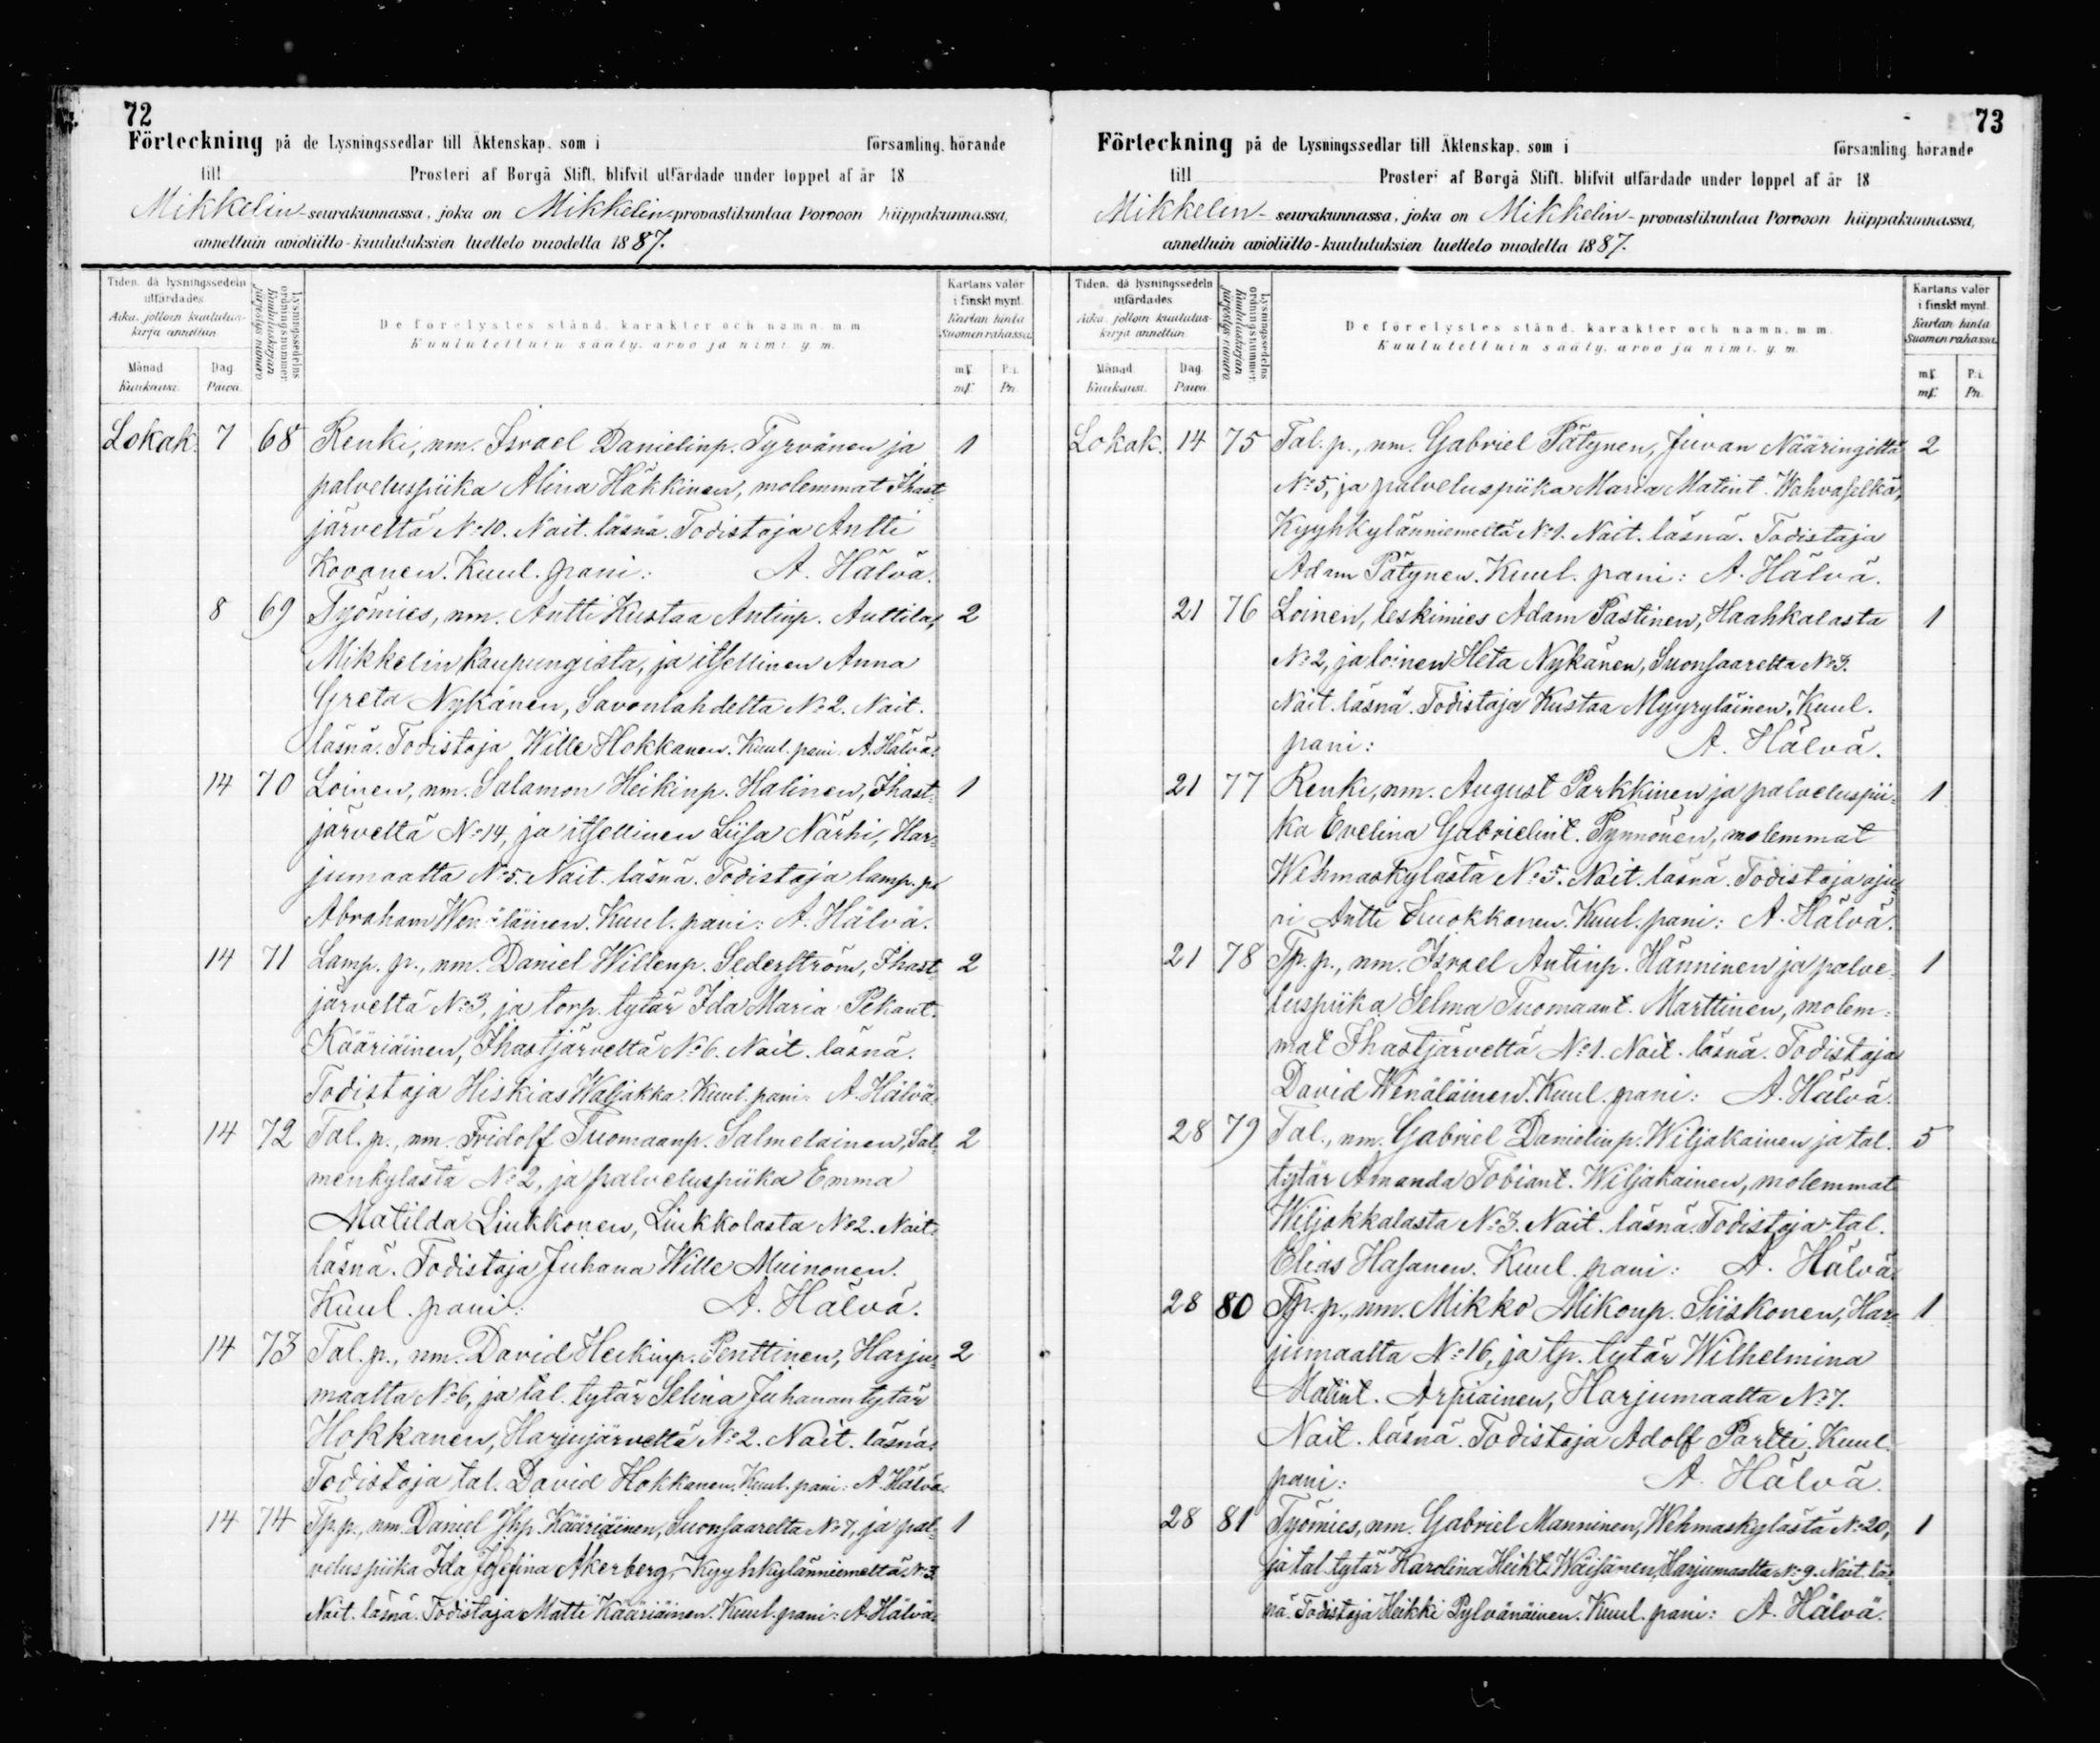 72
Förteckning på de Lysningssedlar till Äktenskap, som i församling, hörande
till Prosteri af Borgå Stift, blifvit utfärdade under loppet af år 18
Mikkelin-seurakunnassa, joka on Mikkelin-provastikuntaa Porvoon hiippakunnassa,
annettuin avioliitto-kuulutuksien luettelo vuodelta 1887.
Tiden, då lysningssedeln utfärdades.
Aika, jolloin kuulutus-kirja annettun.
Månad Kuukausi.
Dag. Päivä.
Lysningssedelns ordningsnummer.
Kuulutuskirjan järjestys numero
De förelystes stånd, karakter och namn, m. m.
Kuulutettuin sääty, arvo ja nimi, y. m.
Kartans valör i finskt mynt.
Kartan hinta Suomen rahassa.
mk. p:i.
mk. Pn.
Lokak. 7 68 Renki, nm. Israel Danielinp. Tyrvänen ja 1
palveluspiika Alina Häkkinen, molemmat Ihast-
järveltä No 10. Nait. läsnä. Todistaja Antti
Kovanen. Kuul. pani: A. Hälvä.
8 69 Työmies, nm. Antti Kustaa Antinp. Anttila, 2
Mikkelin kaupungista, ja itsellinen Anna
Greta Nykänen, Savonlahdelta No 2. Nait.
läsnä. Todistaja Wille Hokkanen. Kuul. pani. A. Hälvä.
14 70 Loinen, nm. Salamon Heikinp. Halinen, Ihast- 1
järveltä No 14, ja itsellinen Liisa Närhi, Har-
jumaalta No 5. Nait. läsnä. Todistaja lamp. p.
Abraham Wenäläinen. Kuul. pani: A. Hälvä.
14 71 Lamp. p., nm. Daniel Willenp. Sederström, Ihast- 2
järveltä No 3, ja torp. tytär Ida Maria Pekant.
Kääriäinen, Ihastjärveltä No 6. Nait. läsnä.
Todistaja Hiskias Waljakka. Kuul. pani: A. Hälvä.
14 72 Tal. p., nm. Fridolf Tuomaanp. Salmelainen, Sal- 2
menkylästä No 2, ja palveluspiika Emma
Matilda Liukkonen, Liukkolasta No 2. Nait.
läsnä. Todistaja Juhana Wille Muinonen.
Kuul. pani: A. Hälvä.
14 73 Tal. p., nm. David Heikinp. Penttinen, Harju- 2
maalta No 6, ja tal. tytär Selina Juhanan tytär
Hokkanen, Harjujärveltä No 2. Nait. läsnä.
Todistaja tal. David Hokkanen. Kuul. pani: A. Hälvä.
14 74 Tp. p., nm. Daniel Jhp. Kääriäinen, Suonsaarelta No 7, ja pal- 1
veluspiika Ida Josefina Åkerberg, Kyyhkylänniemeltä No 3.
Nait. läsnä. Todistaja Matti Kääriäinen. Kuul. pani: A. Hälvä.
73
Förteckning på de Lysningssedlar till Äktenskap, som i församling hörande
till Prosteri af Borgå Stift, blifvit utfärdade under loppet af år 18
Mikkelin-seurakunnassa, joka on Mikkelin-provastikuntaa Porvoon hiippakunnassa,
annettuin avioliitto-kuulutuksien luettelo vuodelta 1887.
Tiden, då lysningssedeln utfärdades
Aika, jolloin kuulutus-kirja annettun.
Månad Kuukausi.
Dag. Päivä.
Lysningssedelns ordningsnummer.
Kuulutuskirjan järjestys numero
De förelystes stånd, karakter och namn, m. m.
Kuulutettuin sääty, arvo ja nimi, y. m.
Kartans valör i finskt mynt.
Kartan hinta Suomen rahassa.
mk. p:i.
mk. Pn.
Lokak. 14 75 Tal. p., nm. Gabriel Pätynen, Juvan Nääringiltä 2
No 5, ja palveluspiika Maria Matint. Wahvaselkä,
Kyyhkylänniemeltä No 1. Nait. läsnä. Todistaja
Adam Pätynen. Kuul. pani: A. Hälvä.
21 76 Loinen, leskimies Adam Pastinen, Haahkalasta 1
No 2, ja loinen Heta Nykänen, Suonsaarelta No 3.
Nait. läsnä. Todistaja Kustaa Myyryläinen. Kuul.
pani: A. Hälvä.
21 77 Renki, nm. August Parkkinen ja palveluspii- 1
ka Evelina Gabrielint. Pynnönen, molemmat
Wehmaskylästä No 5. Nait. läsnä. Todistaja aju-
ri Antti Kuokkanen. Kuul. pani: A. Hälvä.
21 78 Tp. p., nm. Israel Antinp. Hänninen ja palve- 1
luspiika Selma Tuomaant. Marttinen, molem-
mat Ihastjärveltä No 1. Nait. läsnä. Todistaja
David Wenäläinen. Kuul. pani: A. Hälvä.
28 79 Tal., nm. Gabriel Danielinp. Wiljakainen ja tal. 5
tytär Amanda Tobiant. Wiljakainen, molemmat
Wiljakkalasta No 3. Nait. läsnä. Todistaja tal.
Elias Hasanen. Kuul. pani: A. Hälvä.
28 80 Tp. p., nm. Mikko Mikonp. Siiskonen, Har- 1
jumaalta No 16, ja tp. tytär Wilhelmina
Matint. Arpiainen, Harjumaalta No 7.
Nait. läsnä. Todistaja Adolf Partti. Kuul.
pani: A. Hälvä.
28 81 Työmies, nm. Gabriel Manninen, Wehmaskylästä No 20, 1
ja tal. tytär Karolina Heikt. Wäisänen, Harjumaalta No 9. Nait. läs-
nä. Todistaja Heikki Pylvänäinen. Kuul. pani: A. Hälvä.